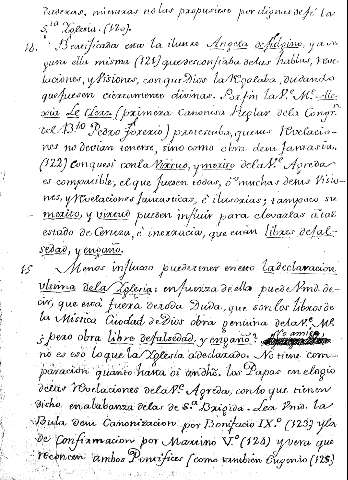 daderas, mientras no las propusiese por dignas de fé la
s.ta Iglesia. (120).
14. Beatificada está la ilustre Angela de Fulgino, y a
ella misma (121) que desconfiaba de sus hablas, reve
laciones, y Visiones, con que Dios la Regalaba, dudando
que fuesen ciertamente divinas. Por fin la V.e M.e Ma
ria Le Clerc (primera Canonisa Reglar de la Congr.
del B.to Pedro Forerio) protestaba, que sus Revelacio
nes no devian tenerse, sino como obra de su fantasia.
(122) conque si con la Virtud, y merito de la V.e Agreda
es compatible, el que fuesen todas, ó muchas de sus Visio
nes, y Revelaciones fantasticas, é ilusorias; tampoco su
merito, y virtud pueden influir para elevarlas á tal
estado de Certeza, é inerracion, que esán libres de fal
sedad, y engaño.
15 Menos influxo puede tener en esto la declaracion
ultima de la Iglesia: en fuerza de ella puede Vmd. de
cir, que está fuera de toda Duda, que son los libros de
la Mistica Ciudad de Dios obra genuina de la V.e M.e
pero obra libre de falsedad, y engaño? No amigo
no es eso lo que la Iglesia a declarado. No tiene com
paracion quanto hasta oi an dho. los Papas en elogio
de las Revelaciones de la V.e Agreda, con lo que tienen
dicho en alabanza de las de S.ta Brigida. Lea Vmd. la
Bula de su Canonizacion por Bonifacio IX.o (123) y la
de Confirmacion por Martino V.o (124) y vera que
reconocen ambos Pontifices (como tambien Eugenio (125)